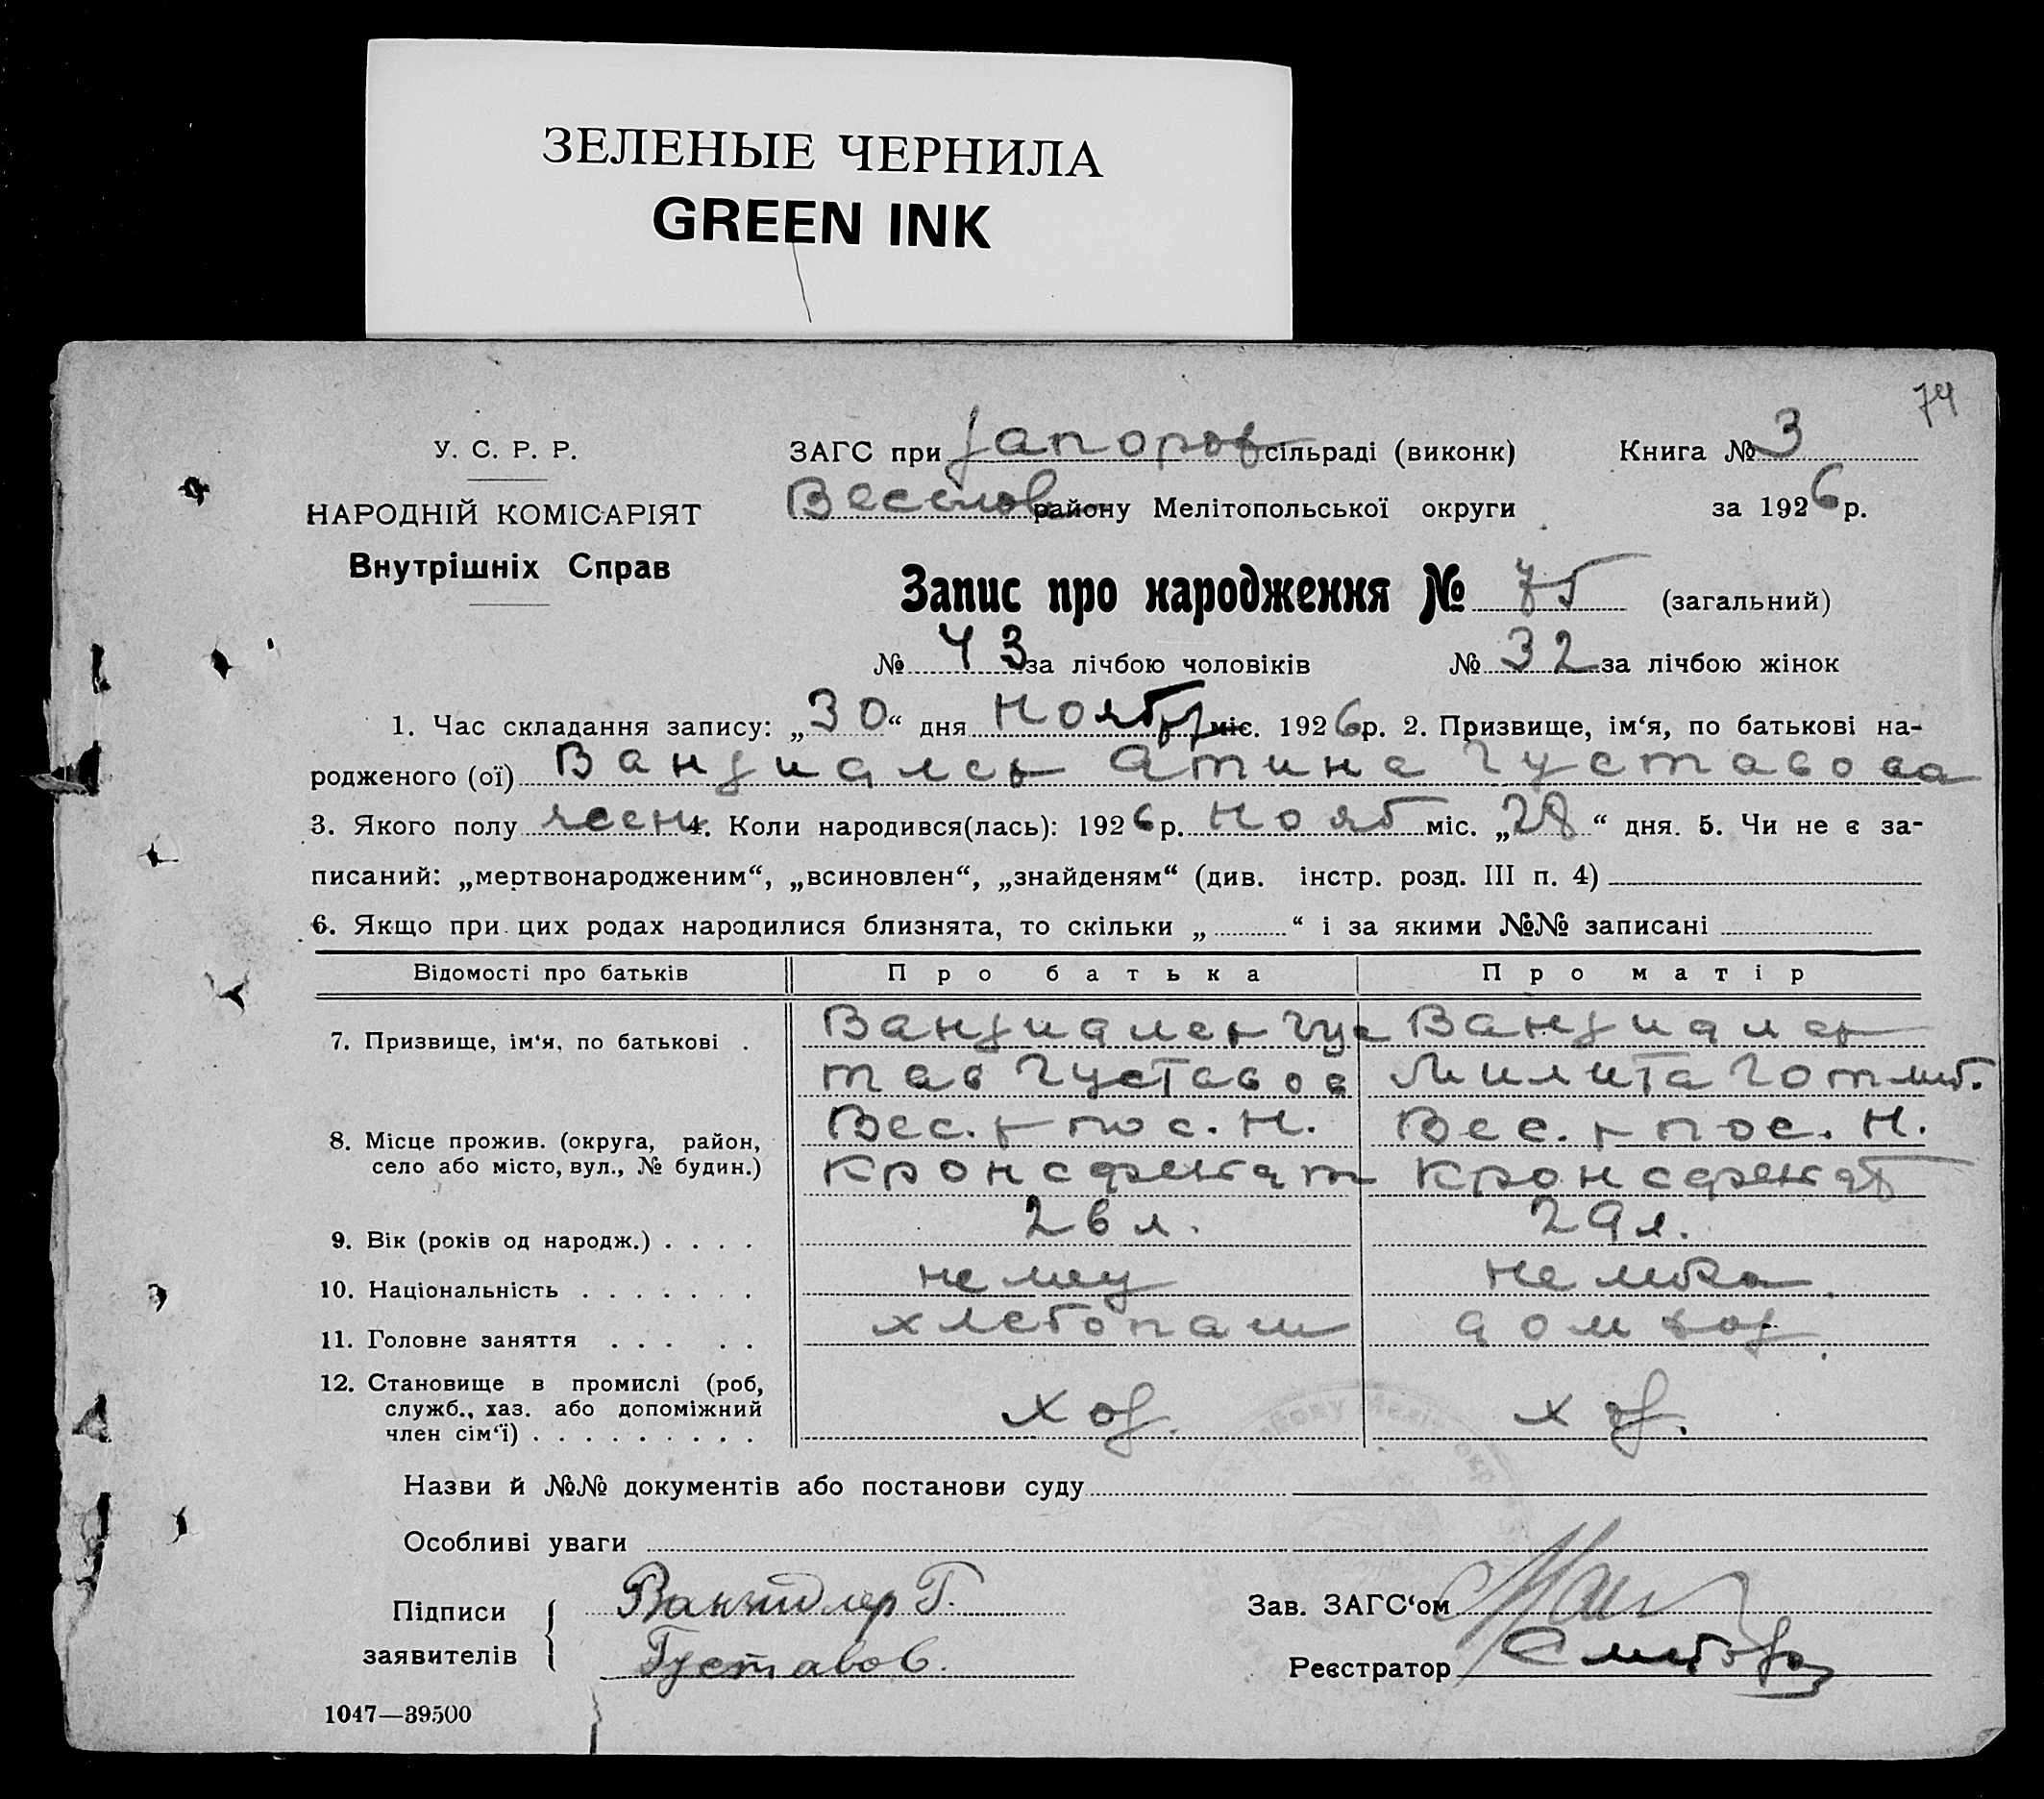 ЗЕЛЕНЫЕ ЧЕРНИЛА
GREEN INK
74
У. С. Р. Р.
НАРОДНІЙ КОМІСАРІЯТ
Внутрішніх Справ
ЗАГС при Запоров сільраді (виконк) Книга № 3
Веселов району Мелітопольської округи за 1926 р.
Запис про народження № 75 (загальний)
№ 43 за лічбою чоловіків № 32 за лічбою жінок
1. Час складання запису: „30“ дня Ноябр міс. 1926 р. 2. Призвище, ім‘я, по батькові на-
родженого (ої) Густавова
3. Якого полу женск 4. Коли народився(лась): 1926 р. Нояб міс. „28“ дня. 5. Чи не є за-
писаний: „мертвонародженим“, „всиновлен“, „знайденям“ (див. інстр. розд. III п. 4)
6. Якщо при цих родах народилися близнята, то скільки „ “ і за якими №№ записані
Відомості про батьків Про батька Про матір
7. Призвище, ім‘я, по батькові . Гус
тав Густавов Милита Готлиб.
8. Місце прожив. (округа, район, Вес. р пос. Н. Вес. р пос. Н.
село або місто, вул., № будин.) Кронсфельт
9. Вік (років од народж.) . . . . 26 л. 29 л.
10. Національність . . . . . . . немец немка
11. Головне заняття . . . . . хлебопаш домхоз
12. Становище в промислі (роб,
служб., хаз. або допоміжний хоз. хоз.
член сім‘ї) . . . . . . . . .
Назви й №№ документів або постанови суду
Особливі уваги
Підписи Г. Зав. ЗАГС‘ом
заявителів Густавов. Реєстратор
1047—39500